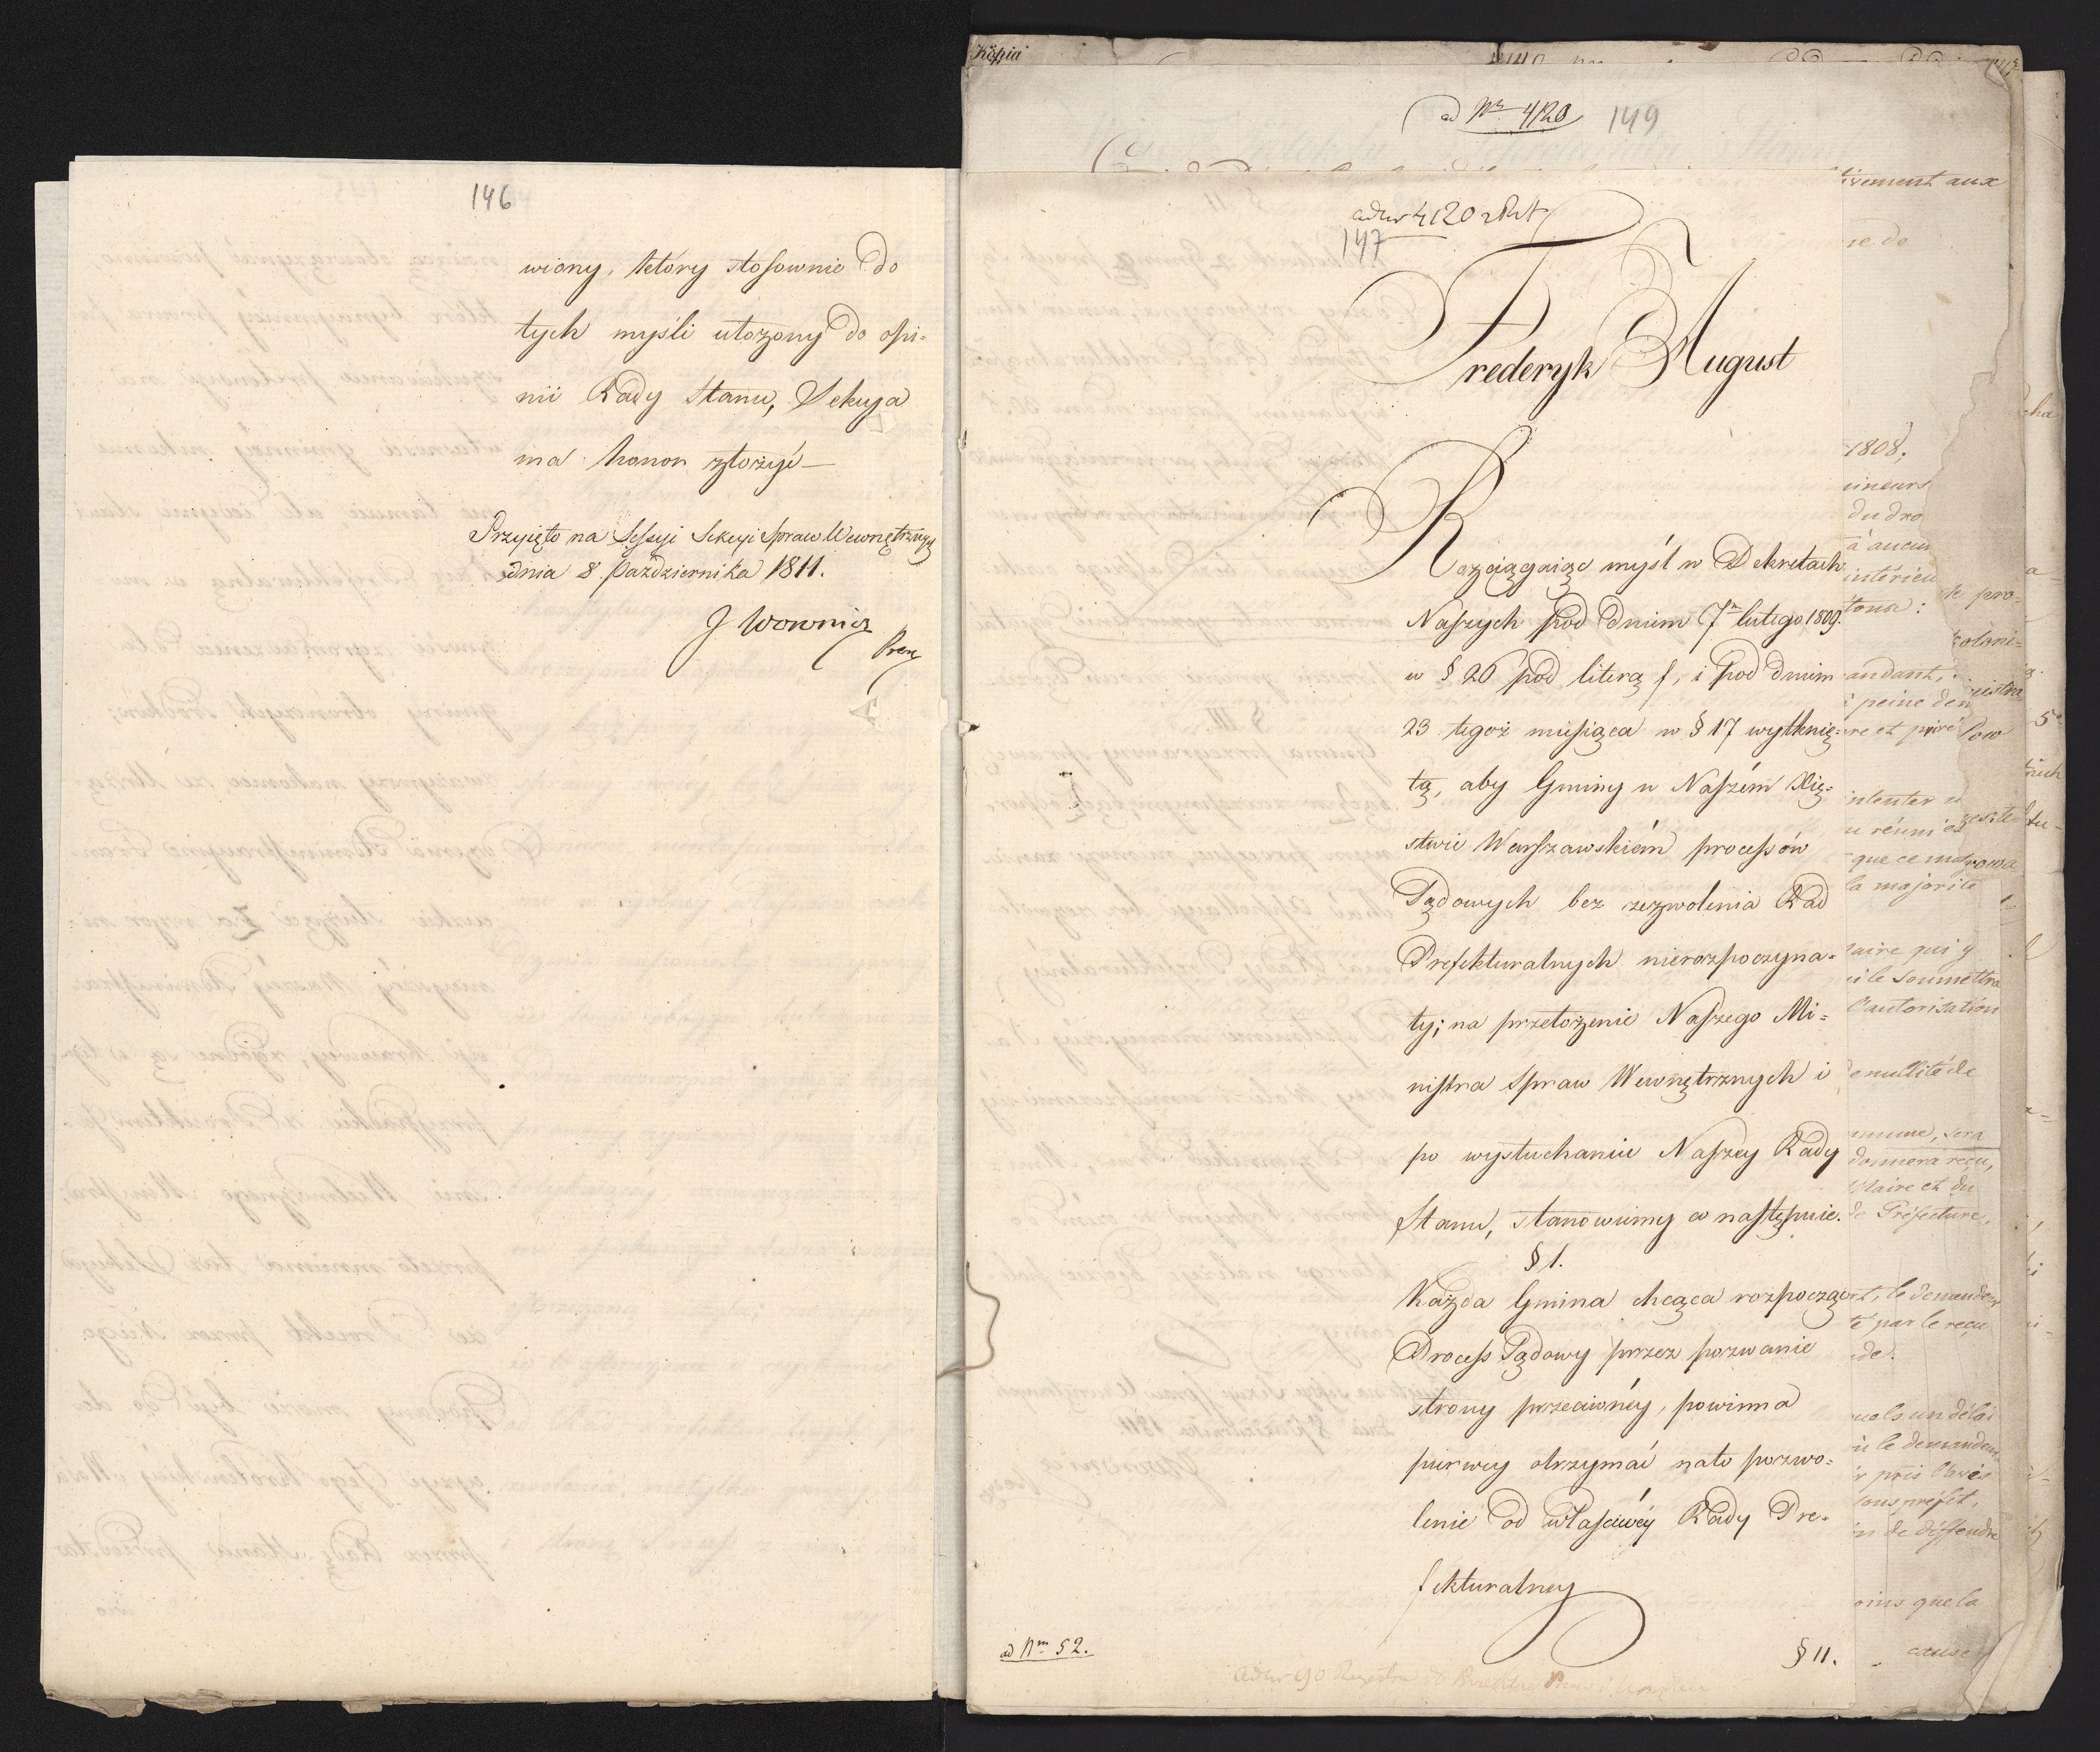 146
wiony, który stosownie do
tych myśli ułożony do opi=
nii Rady Stanu, Sekcya
ma honor złożyć —
Przyięto na Sessyi Sekcyi Spraw Wewnętrznych
dnia 8. Października 1811.
J Woronicz
Prez
Kopia
ad Nr 4120 149
ad Nr 4120
147
Frederyk August
Rozciągaiąc myśl w Dekretach
Naszych pod dniem 7m lutego 1809.
w § 26 pod literą f, i pod dniem
23 tegoż miesiąca w § 17 wytknię=
tą, aby Gminy w Naszém Xię=
stwie Warszawskiém processów
Sądowych bez zezwolenia Rad
Prefekturalnych nierozpoczyna=
ły; na przełożenie Naszego Mi=
nistra Spraw Wewnętrznych i
po wysłuchaniu Naszey Rady
Stanu, stanowiemy co następuie.
§ 1.
Każda Gmina chcąca rozpocząć
Process Sądowy przez pozwanie
strony przeciwnéy, powinna
pierwey otrzymać na to pozwo=
lenie od właściwéy Rady Pre=
fekturalney
ad Nm 52.
§ 11.
ivement aux
re de
1808,
mineurs
du dro
à aucun
intérieu
andant,
peine de
re et privé
intenter
réunie
que ce
la majorité
laire qui y
il le soumettra
l'autorisation
e nullité de
mmune, sera
donnera reçu,
Maire et du
de Préfecture,
t, le demandeur
té par le reçu
de.
un délai
le demandeur
pris l'avis
sous préfet,
in de déffendre
oins que la
cause